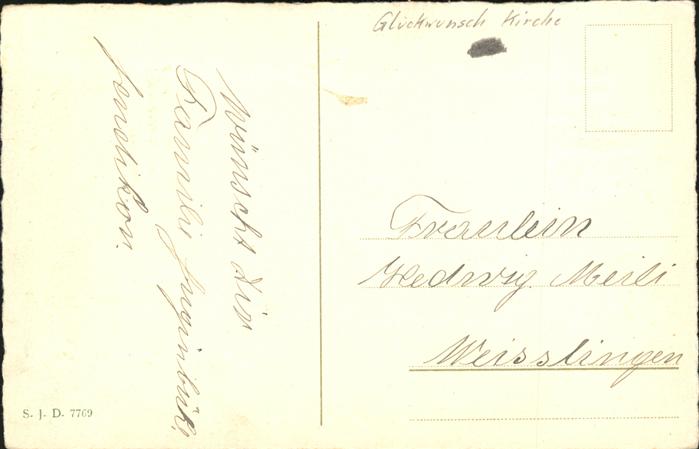 Glückwunsch Kirche
Wünscht Dir
Familie
Fräulein
Hedwig Meili
Weisslingen
S. J. D. 7769